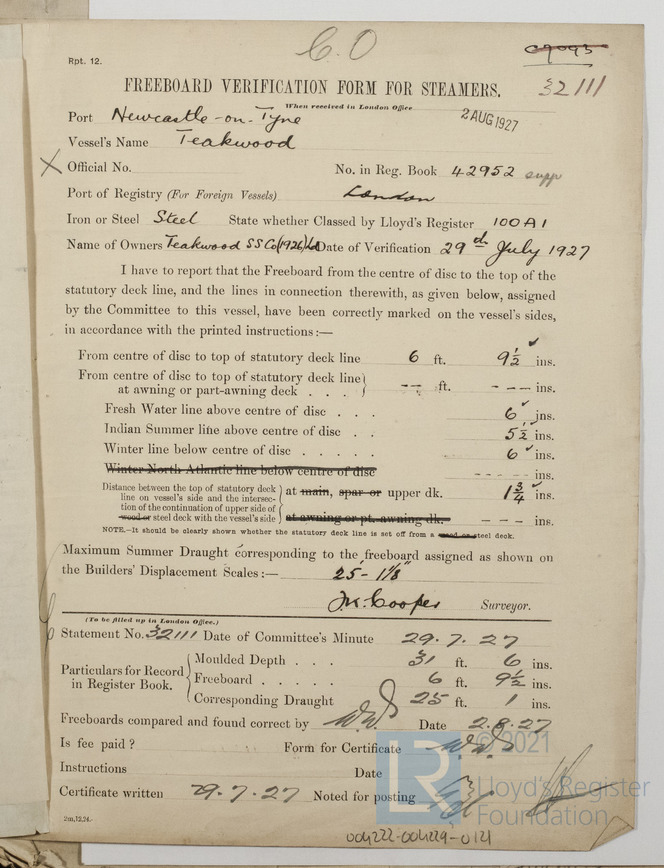 C.O
C9093
Rpt. 12.
FREEBOARD VERIFICATION FORM FOR STEAMERS.
32111
When received in London Office
2 AUG 1927
Port Newcastle-on-Tyne
Vessel's Name Teakwood
X Official No. No. in Reg. Book 42952 supp
Port of Registry (For Foreign Vessels) London
Iron or Steel Steel State whether Classed by Lloyd's Register 100A1
Name of Owners Teakwood SS Co (1926) Ld Date of Verification 29th July 1927
I have to report that the Freeboard from the centre of disc to the top of the
statutory deck line, and the lines in connection therewith, as given below, assigned
by the Committee to this vessel, have been correctly marked on the vessel's sides,
in accordance with the printed instructions:—
From centre of disc to top of statutory deck line 6 ft. 9½ ins.
From centre of disc to top of statutory deck line
at awning or part-awning deck . . . -- ft. --- ins.
Fresh Water line above centre of disc . . . 6 ins.
Indian Summer line above centre of disc . . 5½ ins.
Winter line below centre of disc . . . . . 6 ins.
Winter North Atlantic line below centre of disc ---- ins.
Distance between the top of statutory deck
line on vessel's side and the intersec-
tion of the continuation of upper side of
wood or steel deck with the vessel's side
at main, spar or upper dk. 1¾ ins.
at awning or pt. awning dk. --- ins.
NOTE.—It should be clearly shown whether the statutory deck line is set off from a wood or steel deck.
Maximum Summer Draught corresponding to the freeboard assigned as shown on
the Builders' Displacement Scales:— 25'-1⅛"
J.K. Cooper Surveyor.
(To be filled up in London Office.)
Statement No. 32111 Date of Committee's Minute 29.7.27
Particulars for Record
in Register Book.
Moulded Depth . . . 31 ft. 6 ins.
Freeboard . . . . . 6 ft. 9½ ins.
Corresponding Draught 25 ft. 1 ins.
Freeboards compared and found correct by Date 2.8.27
Is fee paid ? Form for Certificate
Instructions Date
Certificate written 29.7.27 Noted for posting
2m,12,24.
004222-004229-0121
LR
© 2021
Lloyd's Register
Foundation